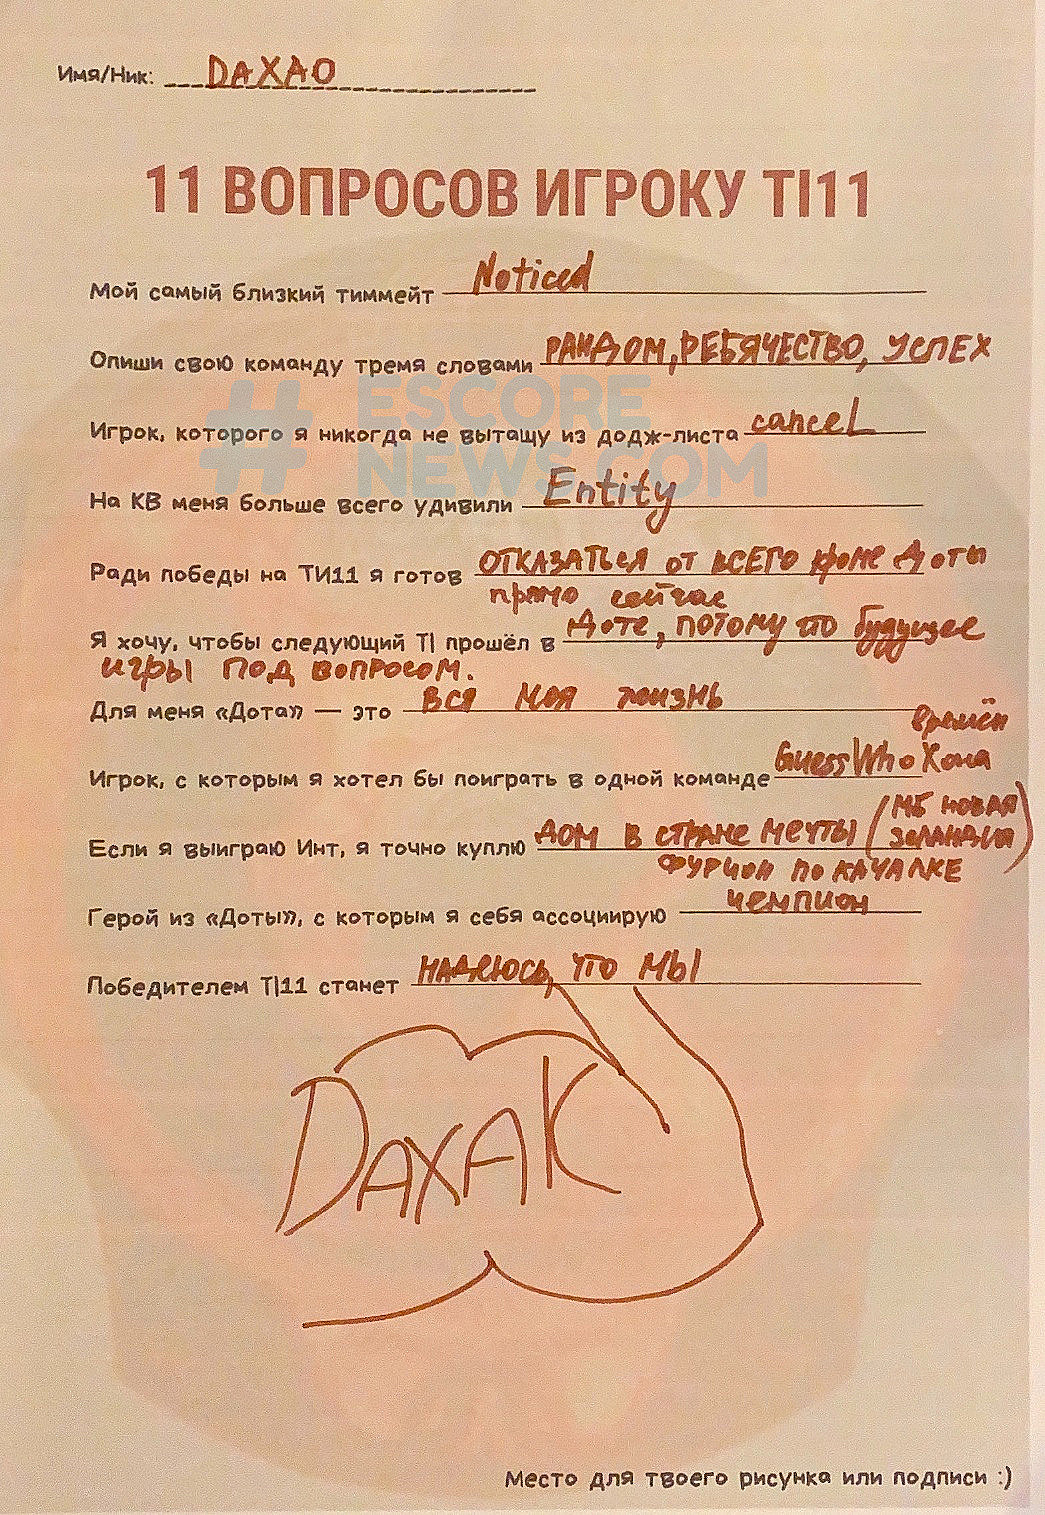 Имя/Ник: DAXAO
11 ВОПРОСОВ ИГРОКУ TI11
Мой самый близкий тиммейт Noticed
Опиши свою команду тремя словами РАНДОМ, РЕБЯЧЕСТВО, УСПЕХ
# ESCORE
NEWS.COM
Игрок, которого я никогда не вытащу из додж-листа canceL
На КВ меня больше всего удивили Entity
Ради победы на ТИ11 я готов ОТКАЗАТЬСЯ ОТ ВСЕГО кроме Доты
прямо сейчас
Я хочу, чтобы следующий TI прошёл в Доте, потому что будущее
игры под вопросом.
Для меня «Дота» — это вся моя жизнь
времён
Игрок, с которым я хотел бы поиграть в одной команде GuessWho Хона
(МБ НОВАЯ
Если я выиграю Инт, я точно куплю ДОМ В СТРАНЕ МЕЧТЫ ЗЕЛАНДИЯ)
ФУРИОН ПО КАЧАЛКЕ
Герой из «Доты», с которым я себя ассоциирую чемпион
Победителем TI11 станет НАДЕЮСЬ, ЧТО МЫ
DAXAK
Место для твоего рисунка или подписи :)